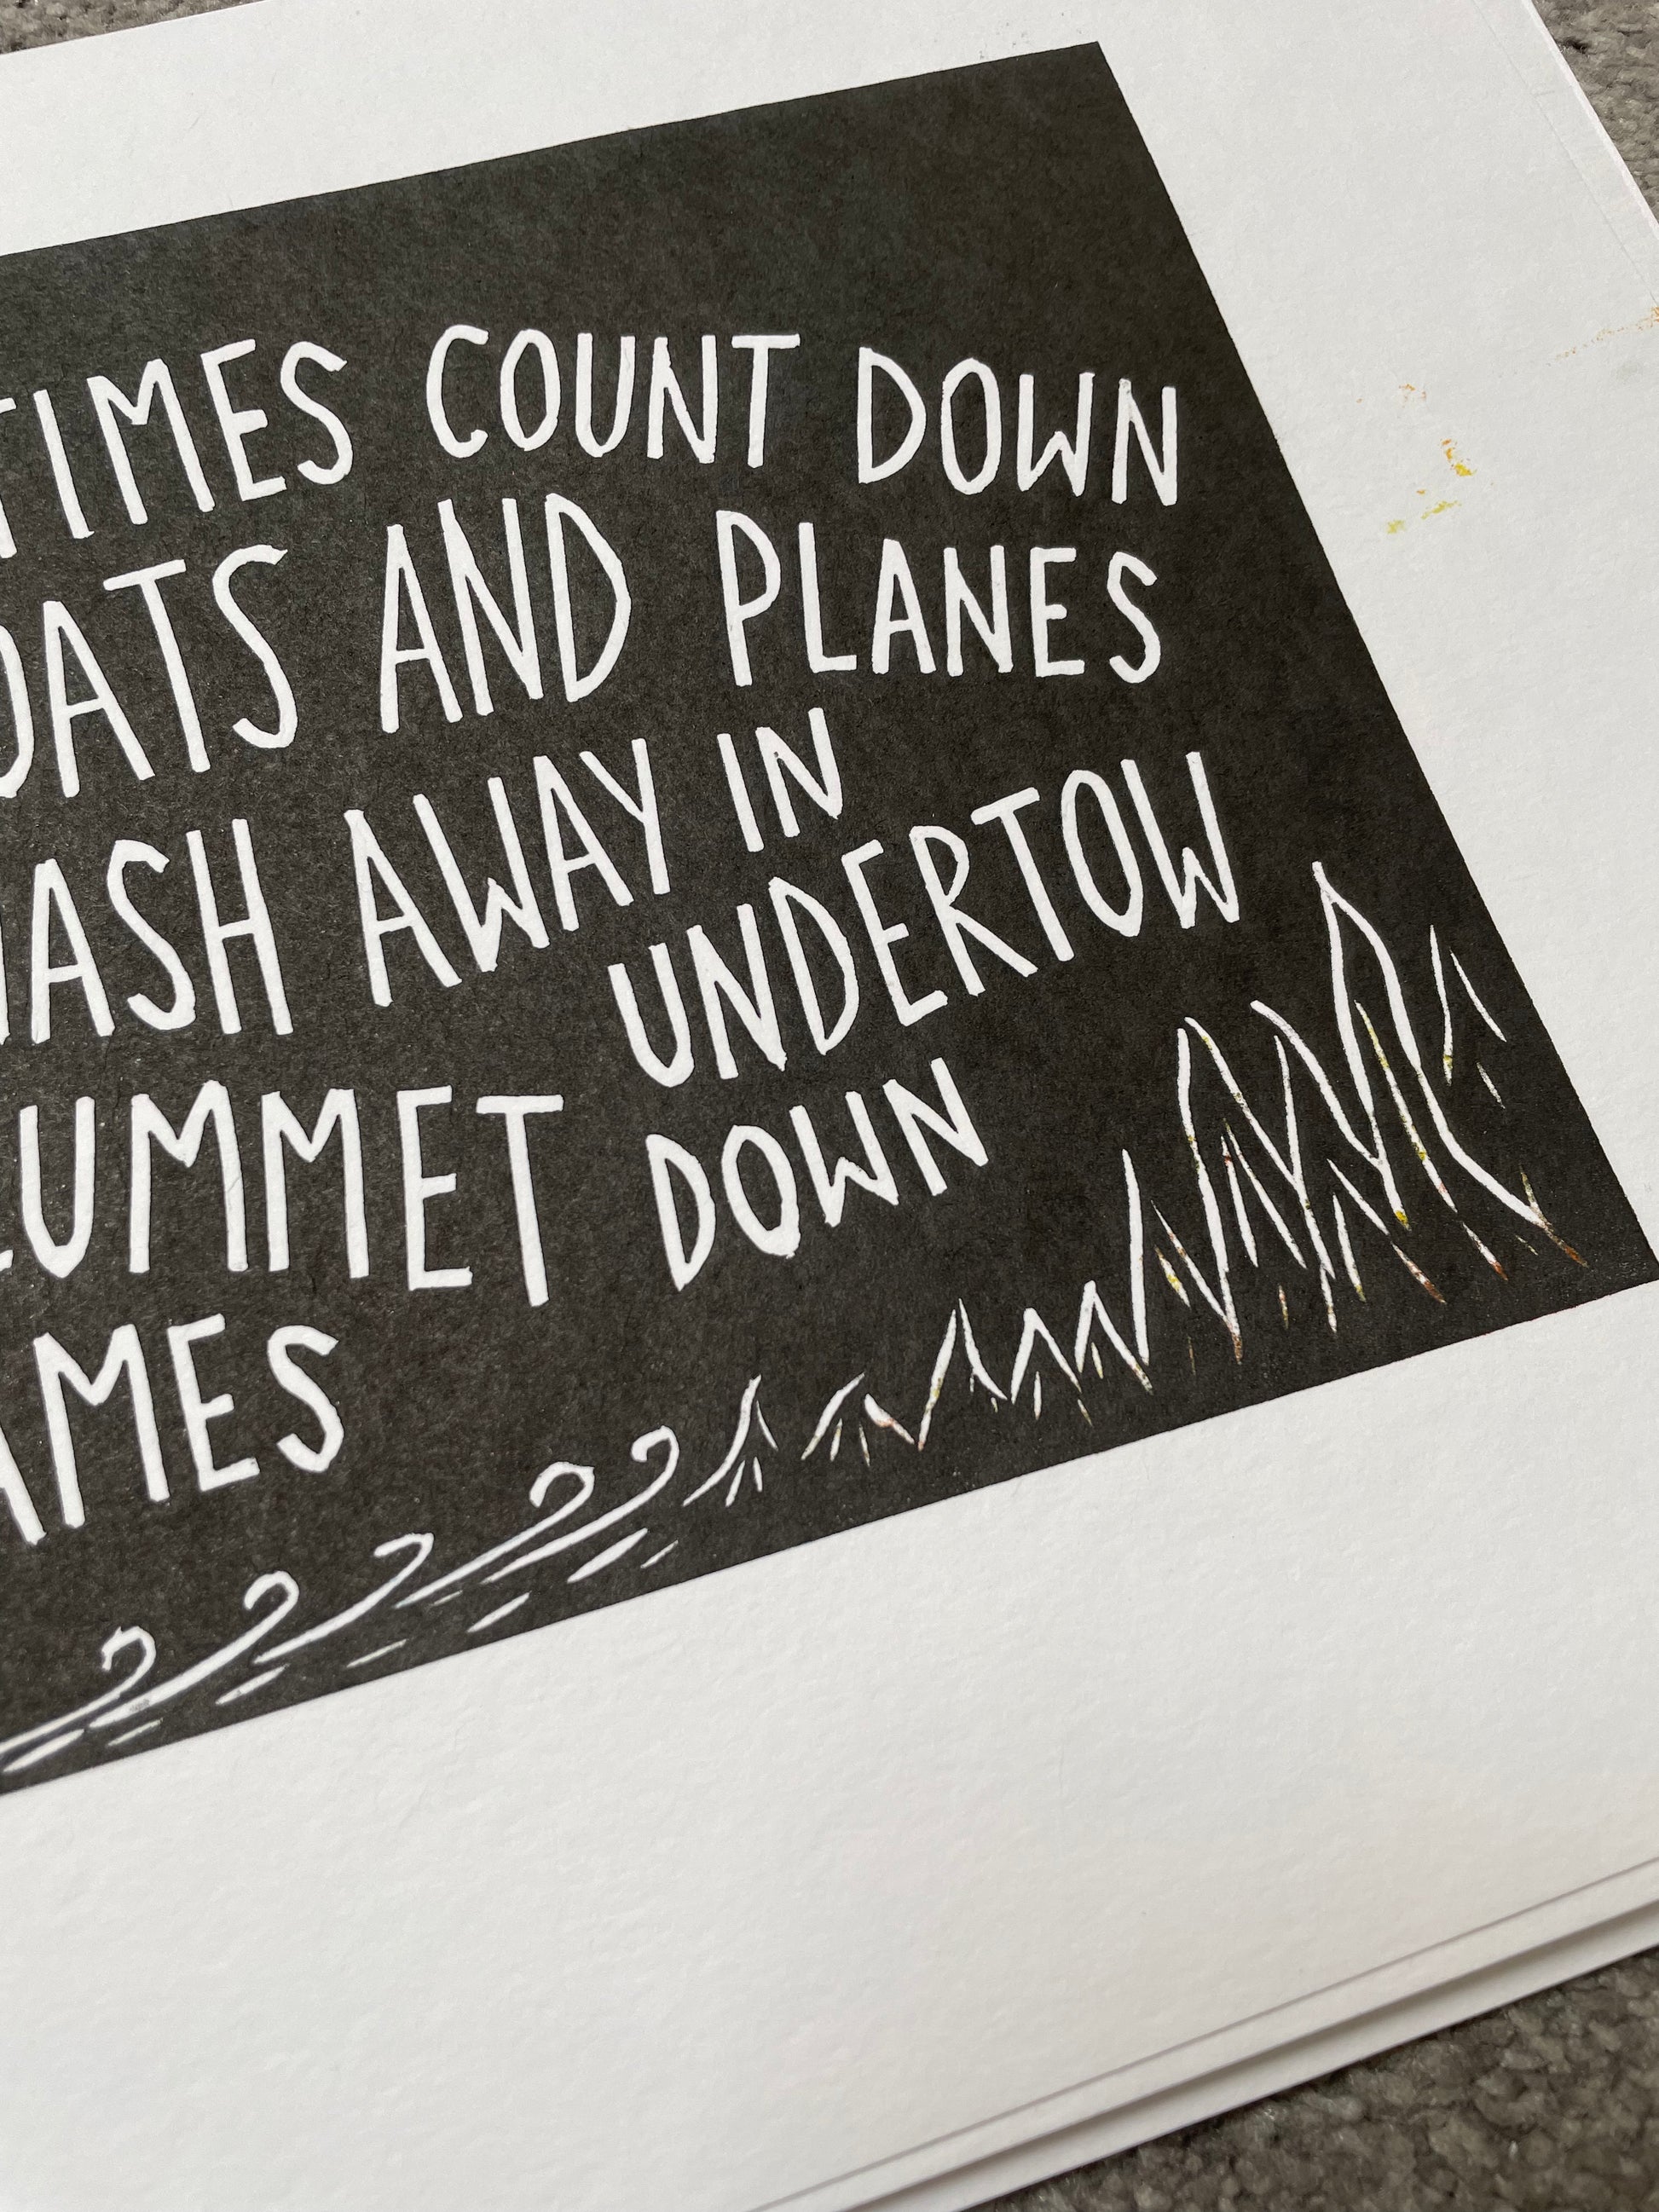 TIMES COUNT DOWN
OATS AND PLANES
ASH AWAY IN
UNDERTOW
LUMMET DOWN
AMES